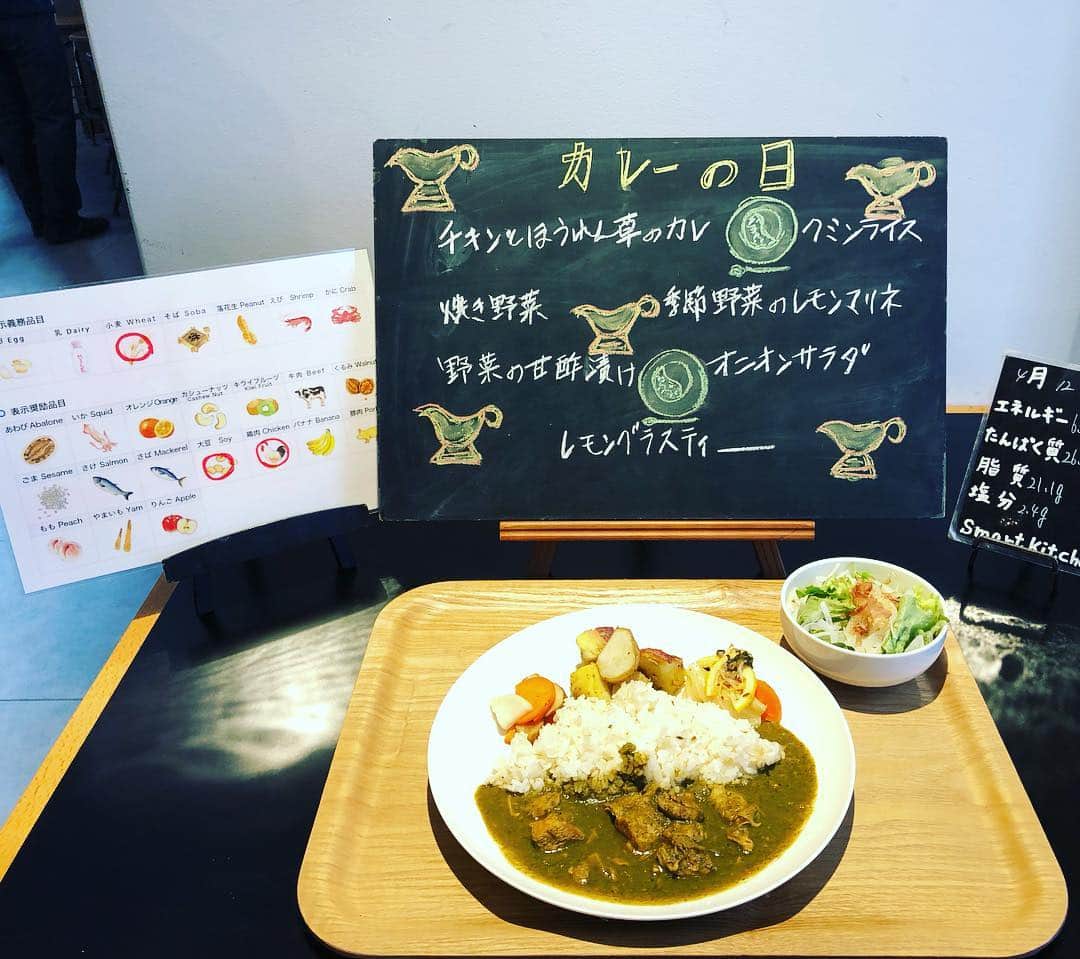 カレーの日
チキンとほうれん草のカレー クミンライス
焼き野菜 季節野菜のレモンマリネ
野菜の甘酢漬け オニオンサラダ
レモングラスティー
示義務品目
Egg 乳 Dairy 小麦 Wheat そば Soba 落花生 Peanut えび Shrimp かに Crab
表示奨励品目
あわび Abalone いか Squid オレンジ Orange カシューナッツ Cashew Nut キウイフルーツ Kiwi Fruit 牛肉 Beef くるみ Walnut
ごま Sesame さけ Salmon さば Mackerel 大豆 Soy 鶏肉 Chicken バナナ Banana 豚肉 Por
もも Peach やまいも Yam りんご Apple
4月 12
エネルギー 6
たんぱく質 26
脂質 21.1g
塩分 2.4g
Smart Kitche